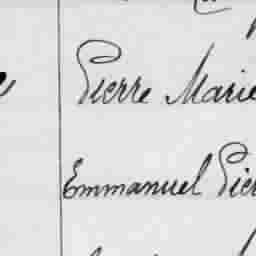 Pierre Marie
Emmanuel Pier